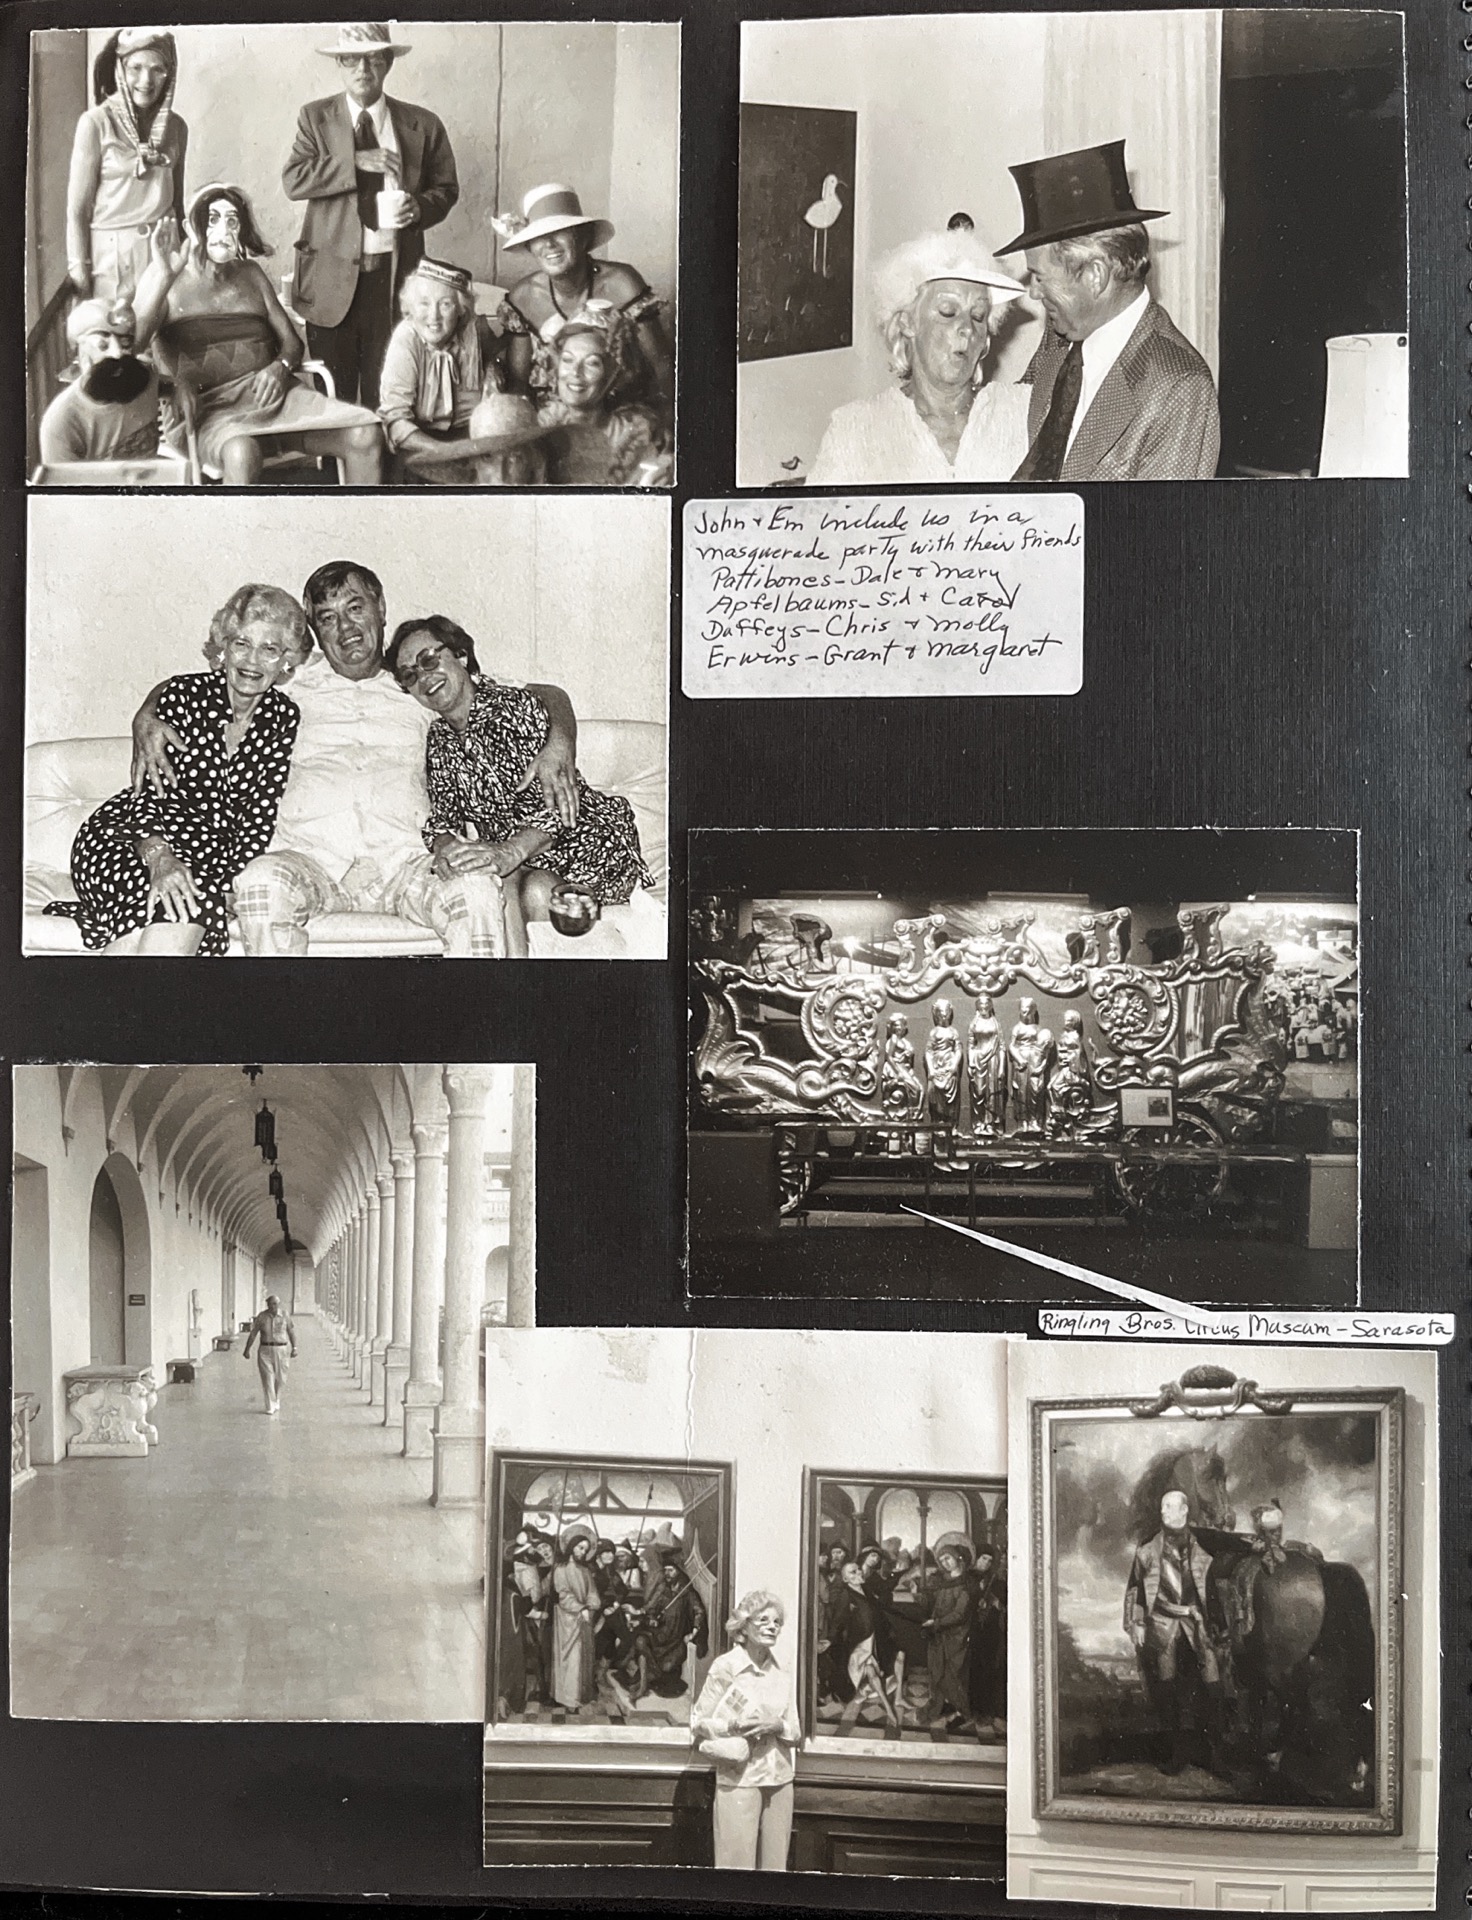 John & Em include us in a
masquerade party with their friends
Pattibones - Dale & Mary
Apfelbaums - Sid & Carol
Daffeys - Chris & Molly
Erwins - Grant & Margaret
Ringling Bros. Circus Museum - Sarasota